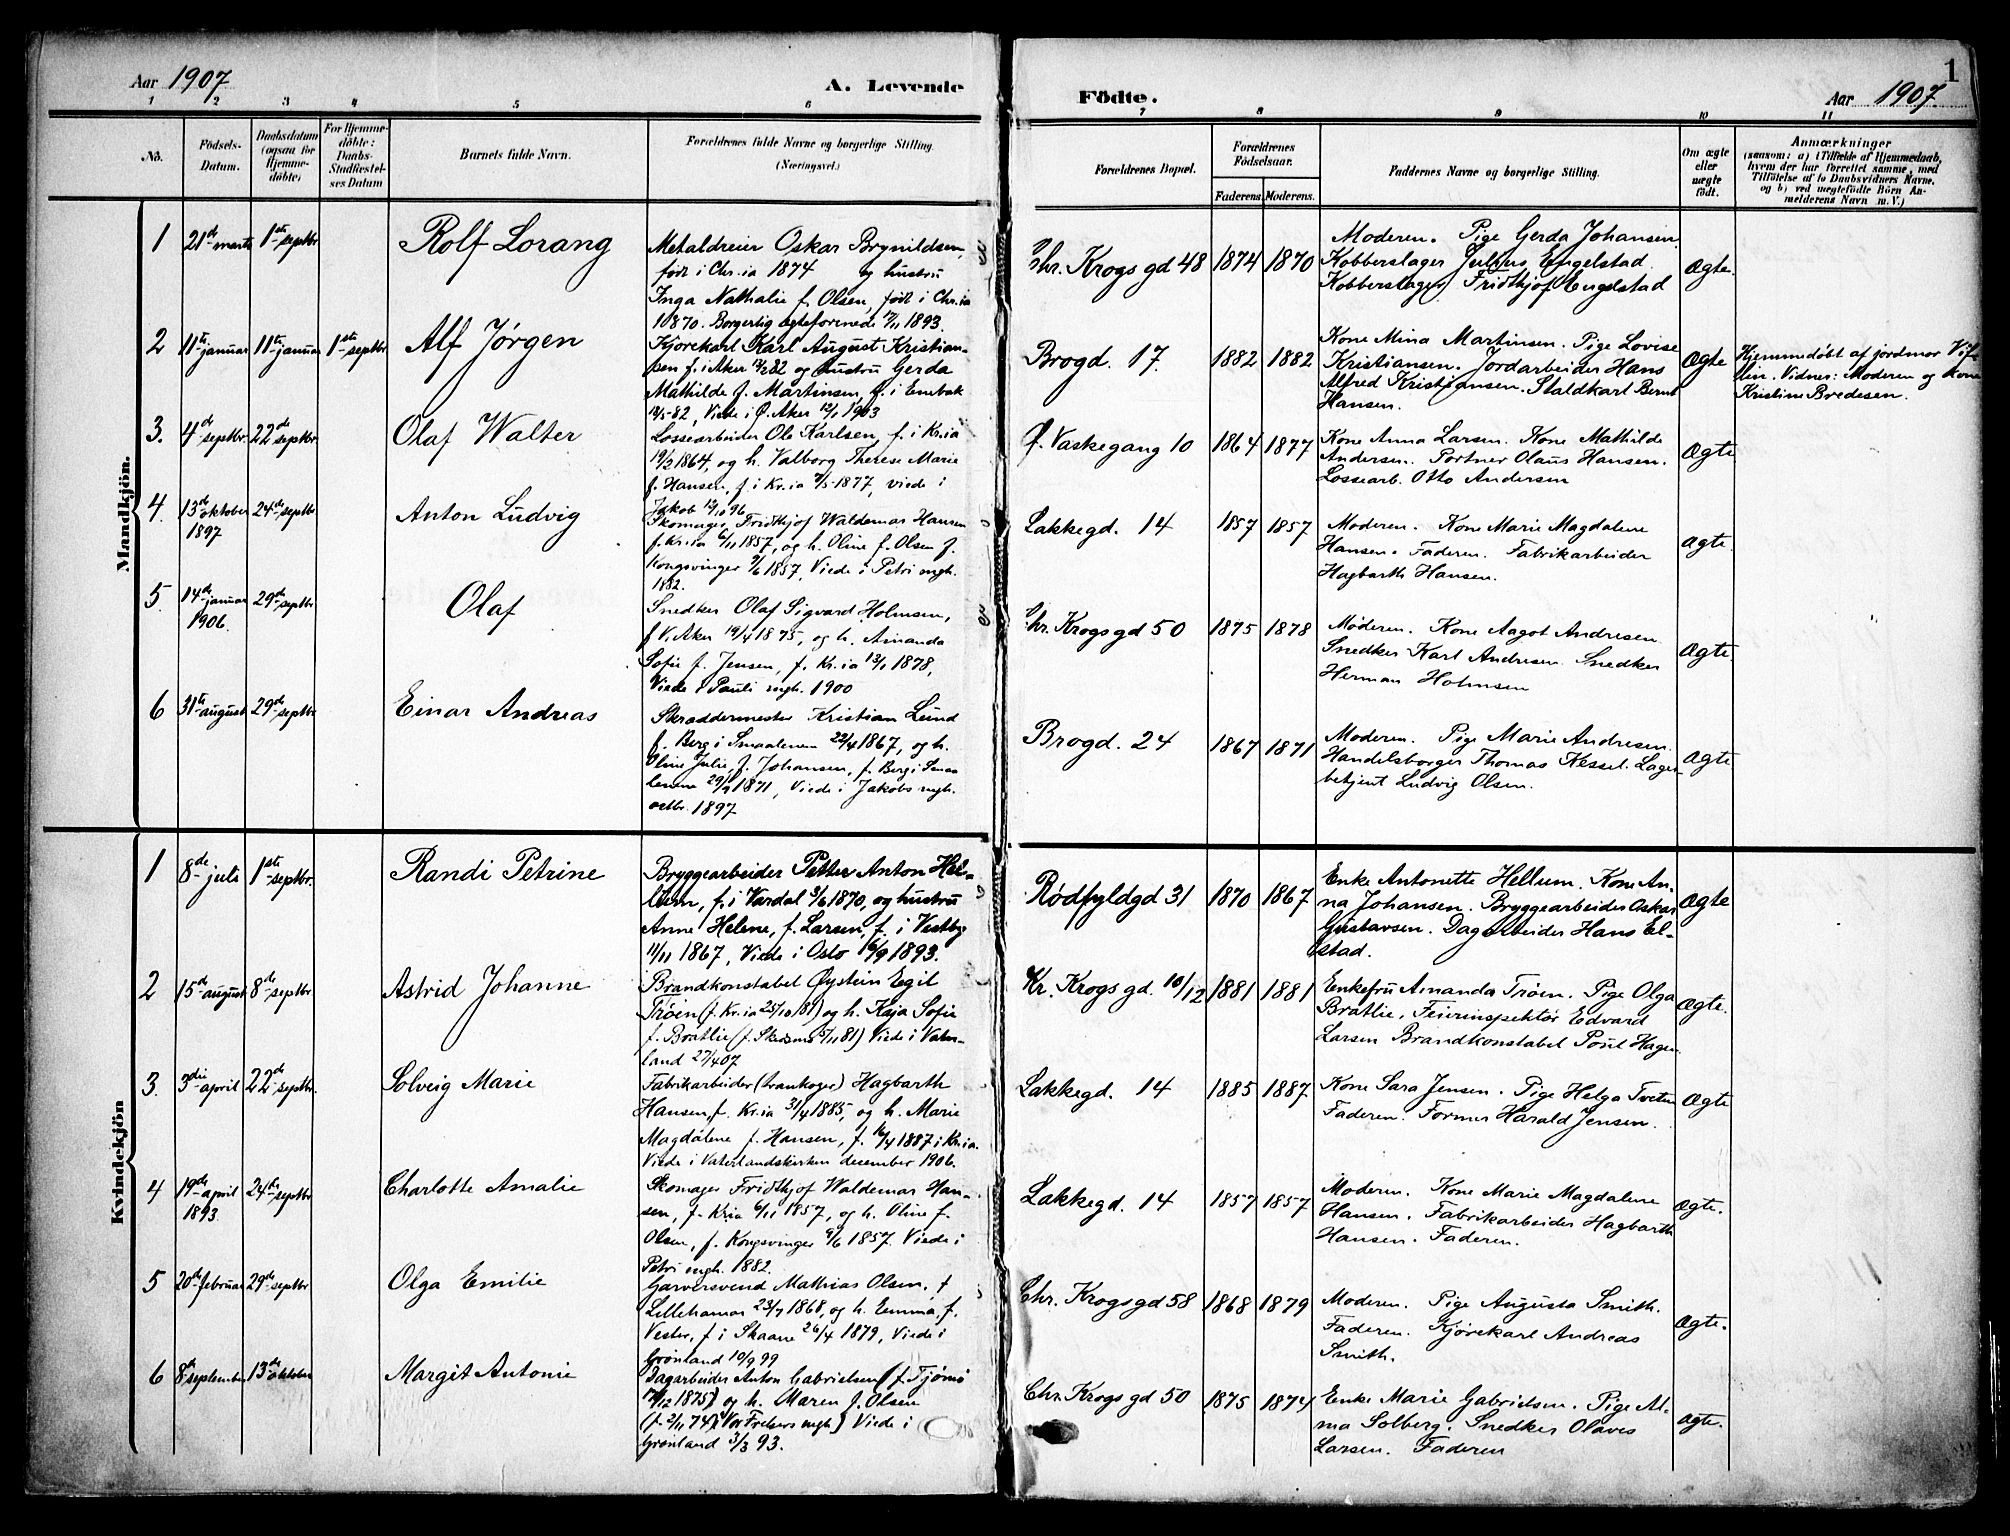 Aar 1907
A. Levende
Födte.
Aar 1907.
1
1 2 3 4 5 6 7 8 9 10 11
No.
Födsels-
Datum.
Daabsdatum
(ogsaa for
Hjemme-
döbte)
For Hjemme-
döbte:
Daabs-
Stadfæstel-
ses Datum
Barnets fulde Navn.
Forældrenes fulde Navne og borgerlige Stilling.
(Næringsvei.)
Forældrenes Bopæl.
Forældrenes
Födselsaar.
Faderens. Moderens.
Faddernes Navne og borgerlige Stilling.
Om ægte
eller
uægte
födt.
Anmærkninger
(saasom: a) i Tilfælde af Hjemmedaab,
hvem der har forrettet samme, med
Tilföielse af to Daabsvidners Navne,
og b) ved uægtefödte Börn An-
melderens Navn m. V.)
Mandkjön.
1
21de marts
1ste septbr
Rolf Lorang
Metaldreier Oskar Brynildsen,
født i Chr.ia 1874 og hustru
Inga Nathalie f. Olsen, født i Chr.ia
1870. Borgerlig ægteforenede 1893.
Chr. Krogs gd 48
1874 1870
Moderen. Pige Gerda Johansen.
Kobberslager Julius Engelstad.
Kobberslager Fridthjof Engelstad
Ægte.
2
11te januar
11te januar
1ste septbr
Alf Jørgen
Kjørekarl Karl August Kristian-
sen f. i Aker 82 og hustru Gerda
Mathilde f. Martinsen, f. i Enebak
82, Viede i Ø. Aker 1903
Brogd. 17.
1882 1882
Kone Mina Martinsen. Pige Lovise
Kristiansen. Jordarbeider Hans
Alfred Kristiansen. Staldkarl Bernt
Hansen.
Ægte
Hjemmedøbt af jordmor
Vidner: Moderen og kone
Kristine Bredesen.
3.
4de septbr.
22de septbr.
Olaf Walter
Lossearbeider Ole Karlsen, f. i Kr.ia
19/2 1864, og h. Valborg Therese Marie
f. Hansen, f. i Kr.ia 1877, viede i
Jakob 96
Ø. Vaskegang 10
1864 1877
Kone Anna Larsen. Kone Mathilde
Andersen. Portner Olaus Hansen.
Lossearb. Otto Andersen
Ægte
4.
13de oktober
1897
24de septbr
Anton Ludvig
Skomager Fridthjof Waldemar Hansen
f. Kr.ia 6/11 1857, og h. Oline f. Olsen f.
Kongsvinger 9/6 1857, Viede i Petri mgh.
1882.
Lakkegd. 14
1857 1857
Moderen. Kone Marie Magdalene
Hansen. Faderen. Fabrikarbeider
Hagbarth Hansen.
Ægte.
5.
14de januar
1906.
29de septbr
Olaf
Snedker Olaf Sigvard Holmsen,
f. V. Aker 19/4 1875, og h. Amanda
Sofie f. Jensen, f. Kr.ia 13/1 1878,
Viede i Pauli mgh. 1900
Chr. Krogs gd 50
1875 1878
Moderen. Kone Aagot Andresen
Snedker Karl Andresen. Snedker
Herman Holmsen
Ægte.
6
31te august
29de septbr
Einar Andreas
Skræddermester Kristian Lund
f. Berg i Smaalenene 22/4 1867, og h.
Oline Julie, f. Johansen, f. Berg i Smaa
lenene 1871, Viede i Jakobs mgh.
octbr. 1897
Brogd. 24
1867 1871
Moderen. Pige Marie Andresen.
Handelsborger Thomas Kessel. Lager-
betjent Ludvig Olsen.
Ægte.
Kvindekjön
1
8de juli
1ste septbr.
Randi Petrine
Bryggearbeider Petter Anton Hel-
lum, f. i Vardal 3/6 1870, og hustru
Anne Helene, f. Larsen, f. i Vestby
11/11 1867, Viede i Oslo 6/9 1893.
Rødfyldgd 31
1870 1867
Enke Antonette Hellum. Kone An-
na Johansen. Bryggearbeider Oskar
Gustavsen. Dagarbeider Hans El-
stad.
Ægte
2
15de august
8de septbr
Astrid Johanne
Brandkonstabel Øystein Egil
Trøen (f. Kr.ia 25/10 81) og h. Kaja Sofie
f. Bratlie (f. Skedsmo 81) Viede i Vater-
land 27/4 07
Kr. Krogs gd. 10/12
1881 1881
Enkefru Amanda Trøen. Pige Olga
Bratlie. Feierinspektør Edvard
Larsen Brandkonstabel Poul Hagen
Ægte.
3.
3die april
22de septbr.
Solveig Marie
Fabrikarbeider (trankoger) Hagbarth
Hansen, f. Kr.ia 31/4 1885, og h. Marie
Magdalene f. Hansen, f. 16/4 1887 i Kr.ia.
Viede i Vaterlandskirken december 1906.
Lakkegd. 14
1885 1887
Kone Sara Jensen. Pige Helga Tveten
Faderen. Former Harald Jensen.
Ægte
4
19de april
1893.
24de septbr
Charlotte Amalie
Skomager Fridthjof Waldemar Han-
sen, f. Kria 6/11 1857, og h. Oline f.
Olsen, f. Kongsvinger 9/6 1857. Viede i
Petri mgh. 1882.
Lakkegd. 14
1857 1857
Moderen. Kone Marie Magdalene
Hansen. Fabrikarbeider Hagbarth
Hansen. Faderen.
Ægte.
5
20de februar
29de septbr
Olga Emilie
Garversvend Mathias Olsen, f
Lillehamar 23/7 1868, og h. Emma, f.
Vester, f i Skaane 26/4 1879, Viede i
Grønland 10/9 99
Chr. Krogs gd 58
1868 1879
Moderen. Pige Augusta Smith.
Faderen. Kjørekarl Andreas
Smith.
Ægte.
6
8de september
13de oktober
Margit Antonie
Dagarbeider Anton Gabrielsen (f. Tjømø
17/12 1875) og h. Maren f. Olsen
(f. 2/11 74) Vor Frelsers mgh.) Viede i
Grønland 3/3 93.
Chr. Krogs gd 50
1875 1874
Enke Marie Gabrielsen. Pige Al-
ma Solberg. Snedker Olaves
Larsen. Faderen
Ægte.